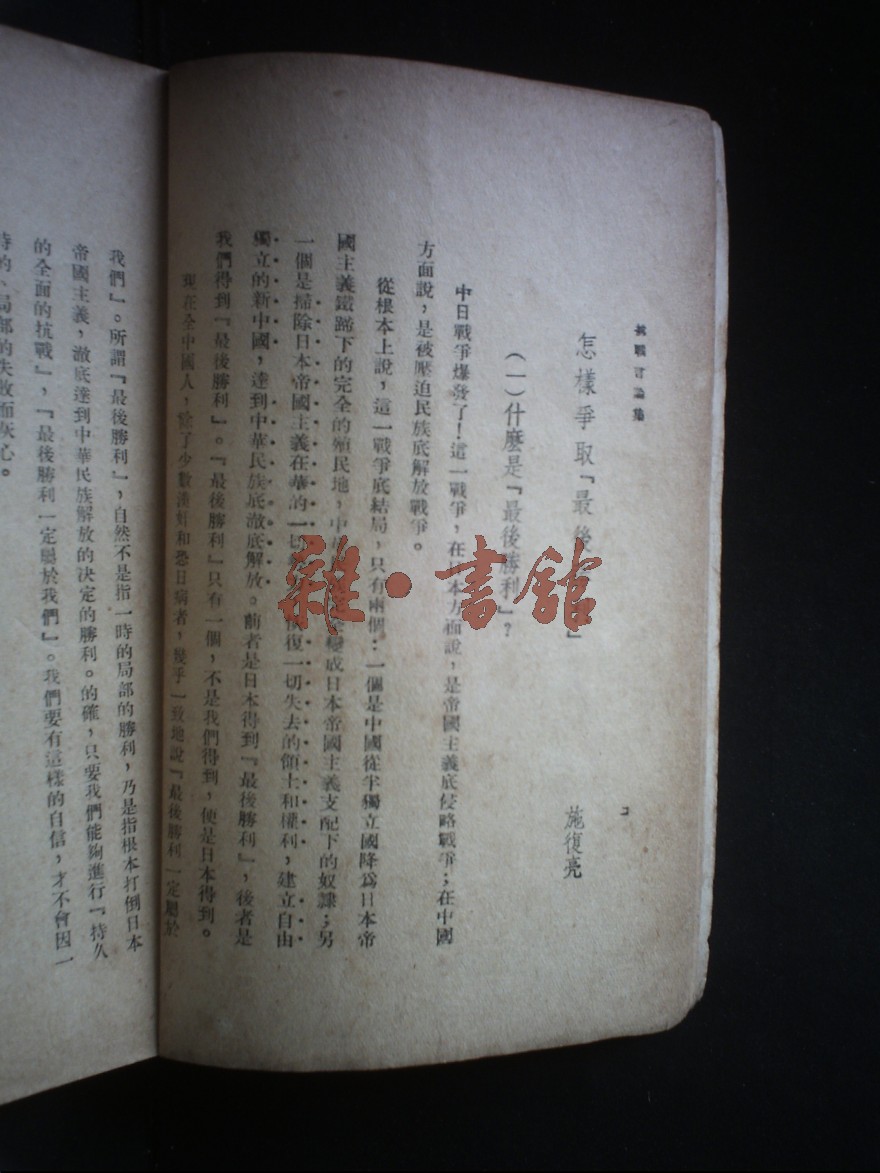 抗戰言論集
怎樣爭取『最後』
施復亮
(一)什麽是『最後勝利』?
中日戰爭爆發了!這一戰爭,在日本方面說,是帝國主義底侵略戰爭;在中國
方面說,是被壓迫民族底解放戰爭。
從根本上說,這一戰爭底結局,只有兩個:一個是中國從半獨立國降爲日本帝
國主義鐵蹄下的完全的殖民地,中變成日本帝國主義支配下的奴隸;另
一個是掃除日本帝國主義在華的一切復一切失去的領土和權利,建立自由
獨立的新中國,達到中華民族底澈底解放。前者是日本得到『最後勝利』,後者是
我們得到『最後勝利』。『最後勝利』只有一個,不是我們得到,便是日本得到。
現在全中國人,除了少數漢奸和恐日病者,幾乎一致地說『最後勝利一定屬於
我們』。所謂『最後勝利』,自然不是指一時的局部的勝利,乃是指根本打倒日本
帝國主義,澈底達到中華民族解放的決定的勝利。的確,只要我們能夠進行『持久
的全面的抗戰』,『最後勝利一定屬於我們』。我們要有這樣的自信,才不會因一
時的、局部的失敗而灰心。
雜·書館